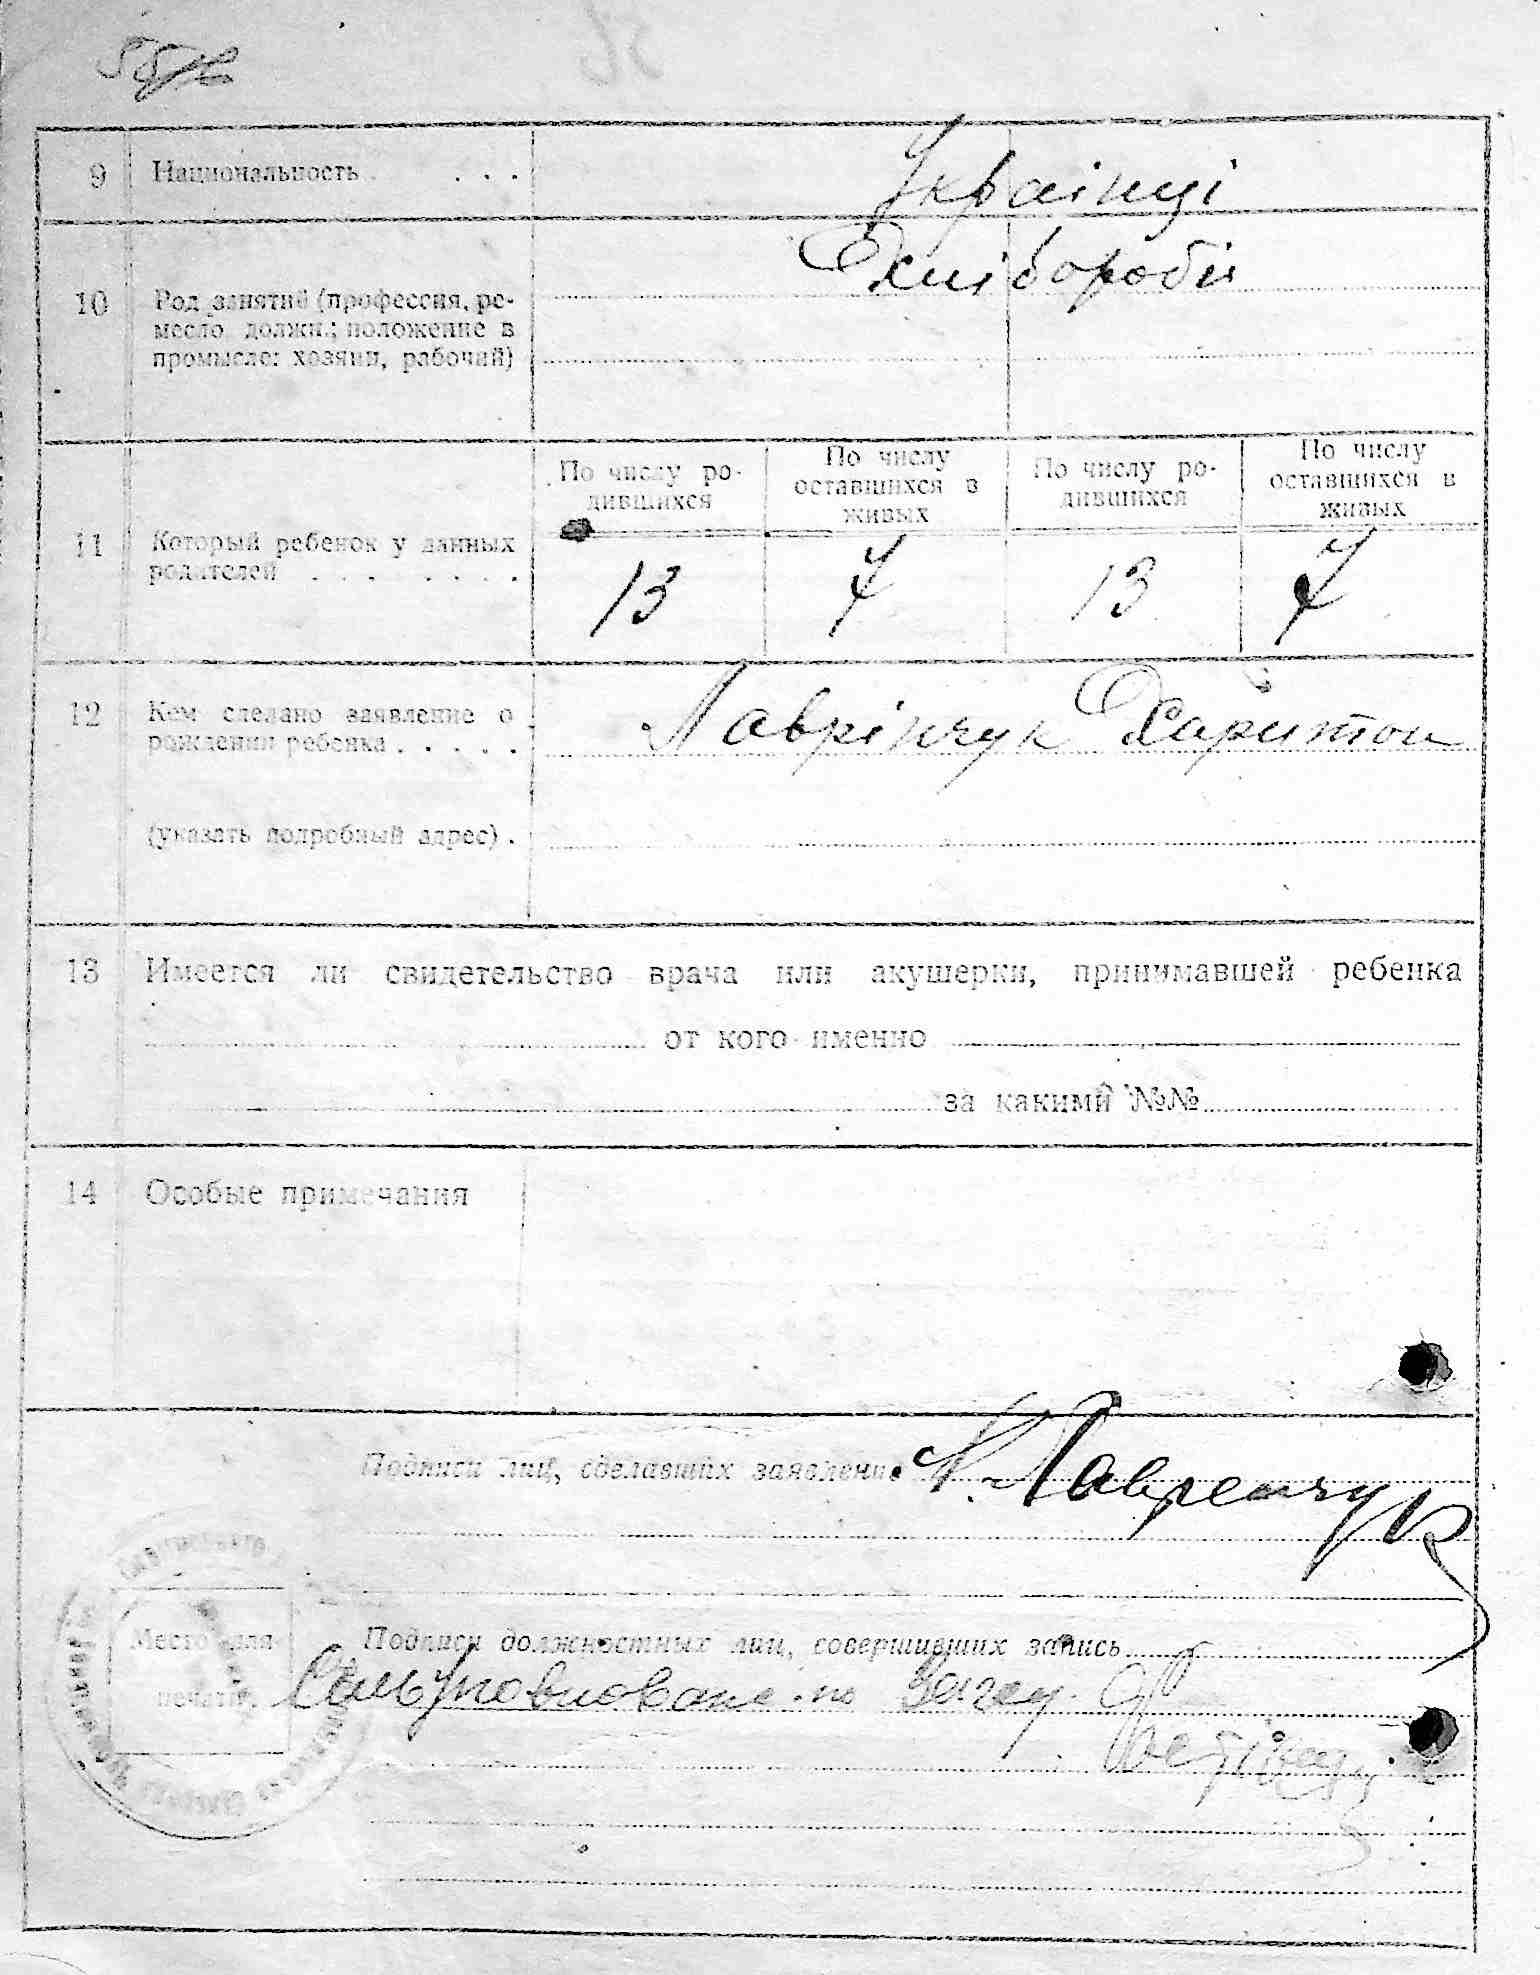 9 Национальность . . . Українці
10 Род занятий (профессия, ре-
месло должн.; положение в
промысле: хозяин, рабочий)
Хлібороби
11 Который ребенок у данных
родителей . . . . . . .
По числу ро-
дившихся
По числу
оставшихся в
живых
По числу ро-
дившихся
По числу
оставшихся в
живых
13 7 13 7
12 Кем сделано заявление о
рождении ребенка . . . . .
Лаврінчук Харитон
(указать подробный адрес) .
13 Имеется ли свидетельство врача или акушерки, принимавшей ребенка
от кого именно
за какими №№
14 Особые примечания
Подписи лиц, сделавших заявление Х. Лавренчук
Место для
печати.
Подписи должностных лиц, совершивших запись
СільУповноваже. по Загсу